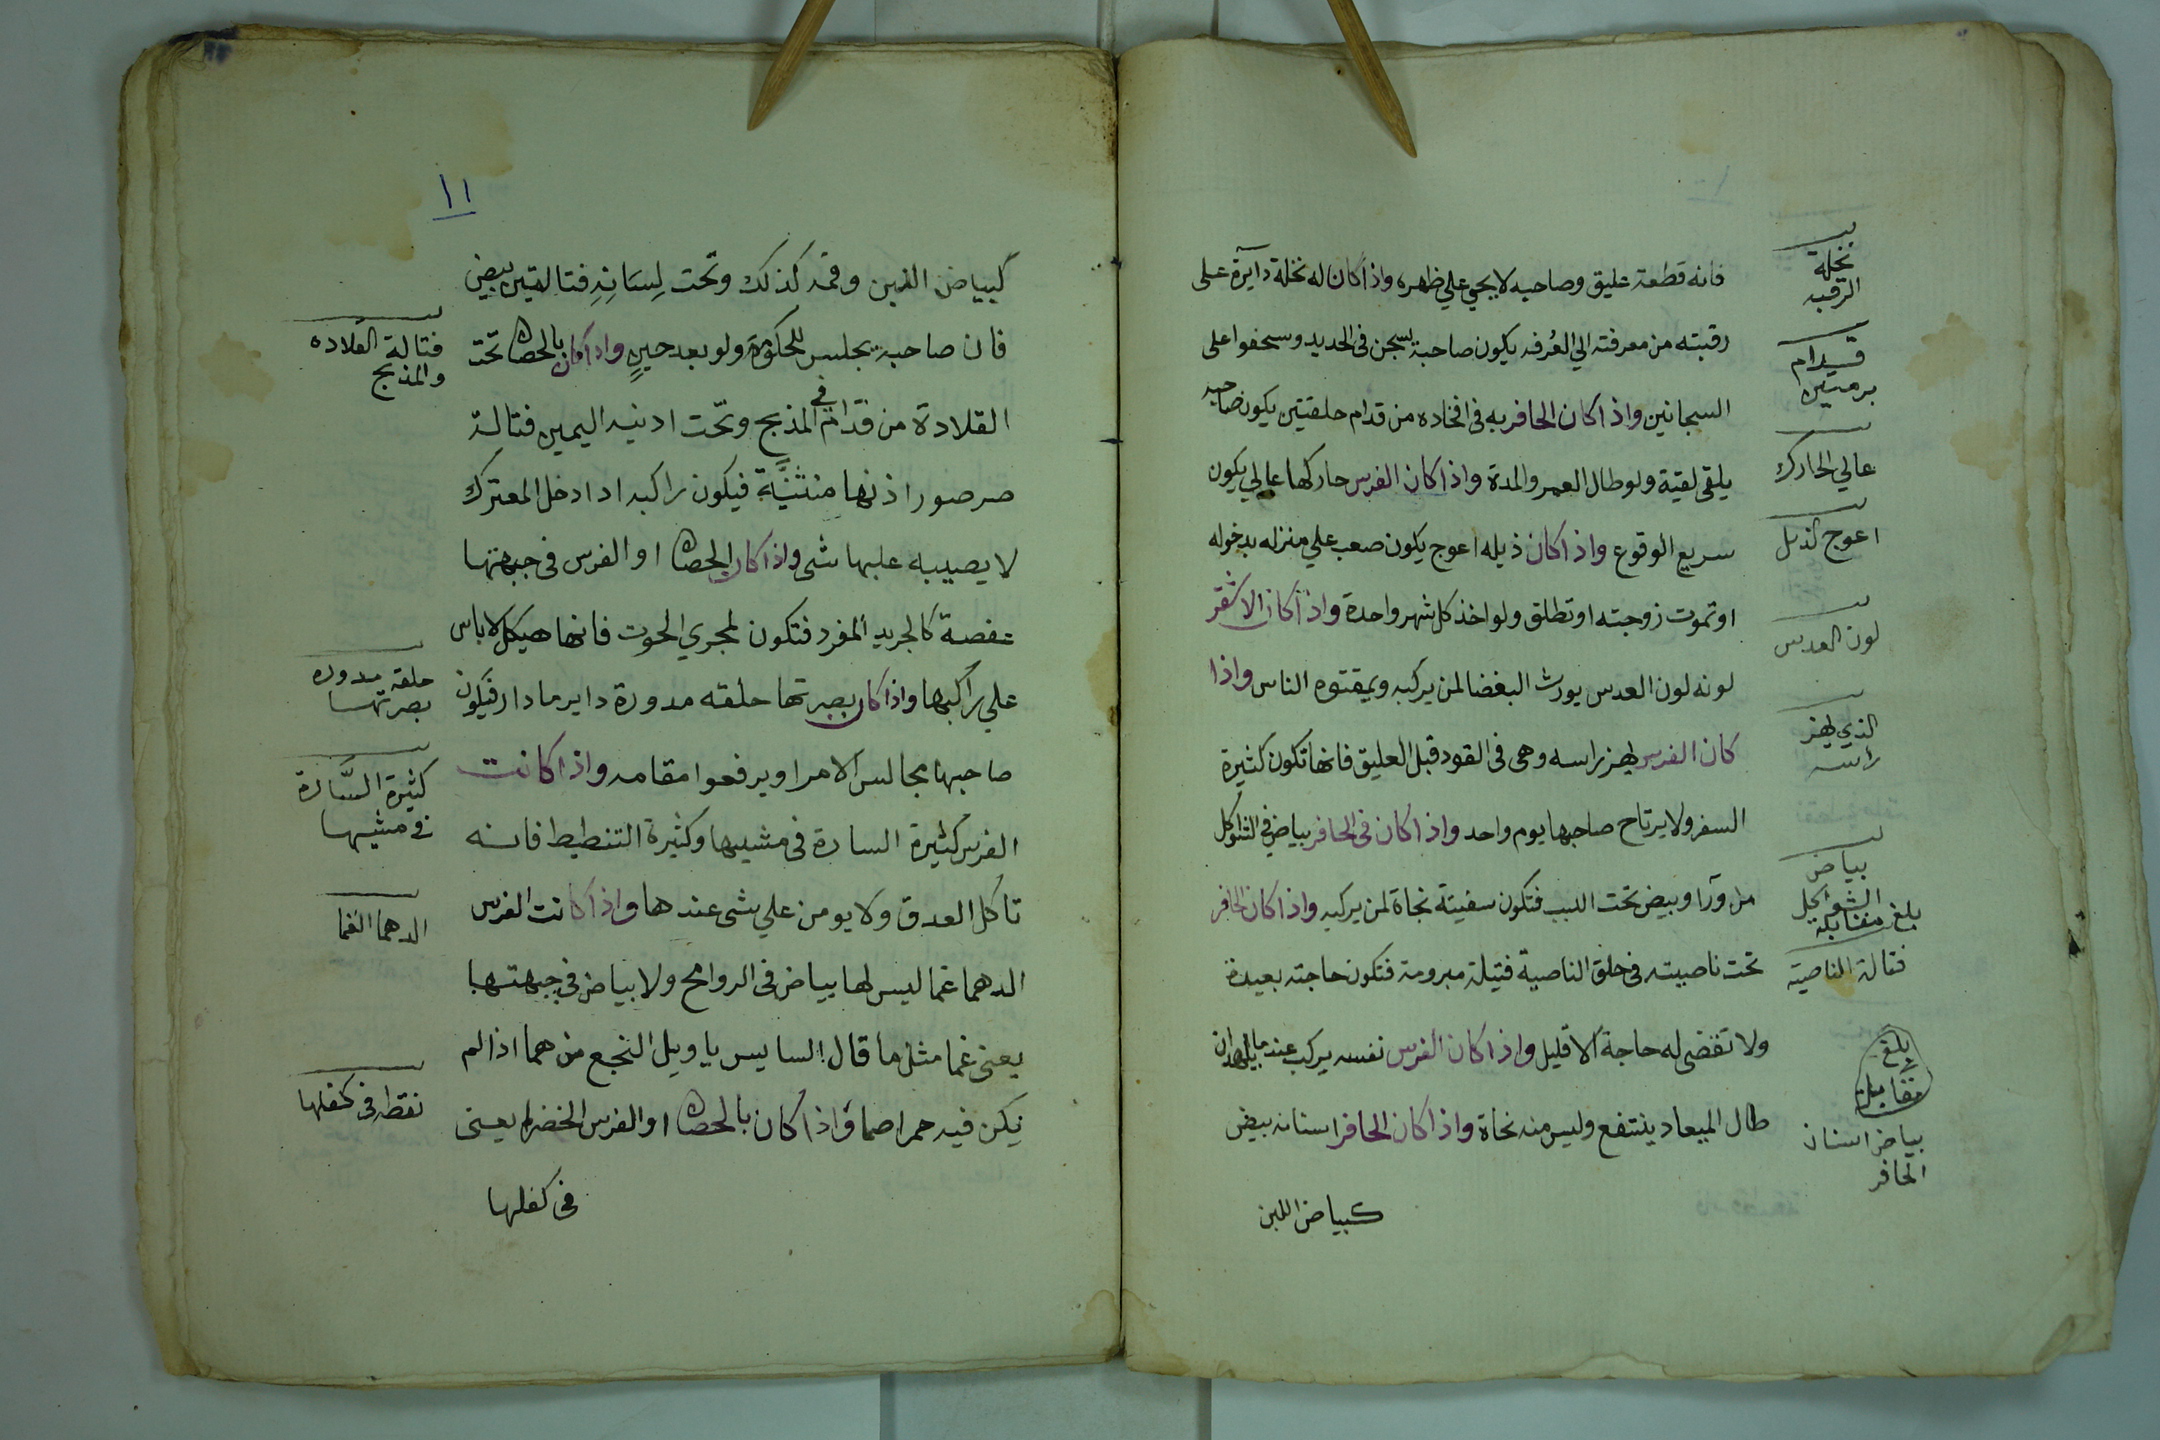 فانه قطعة عليق وصاحبه لا يجي علي ظهره واذا كان له نخلة دايرة على
رقبته من معرفته الي العُرفه يكون صاحبة يسجن في الحديد وسحفوا على
السجانين واذا كان الحافر به في افخاده من قدام حلقتين يكون صاحبه
يلقى لقية ولو طال العمر والمدة واذا كان الفرس حاركها عالي يكون
سريع الوقوع واذا كان ذيله اعوج يكون صعب علي منزله بدخوله
او تموت زوجته او تطلق ولو اخذ كل شهر واحدة واذا كان الاشقر
لونه لون العدس يورث البغضا لمن يركبه ويمقتوه الناس واذا
كان الفرس يهز راسه وهي في القود قبل العليق فانها تكون كثيرة
السفر ولا يرتاح صاحبها يوم واحد واذا كان في الحافر بياض في
من ورا وبيض تحت اللبب فتكون سفينة نجاة لمن يركبه واذا كان الحافر
تحت ناصيته في حلق الناصية فتيلة مبرومة فتكون حاجته بعيدة
ولا تقضى له حاجة الا قليل واذا كان الفرس نفسه يركب عند ان
طال الميعاد ينتفع وليس منه نجاة واذا كان الحافر اسنانه بيض
كبياض اللبن
نخلة
الرقبه
قدام
عالي الحارك
اعوج الذيل
لون العدس
الذي يهز
راسه
بياض
بلغ مقابلة
فتالة الناصية
بلغ
مقابلة
بياض اسنان
الحافر
١١
كبياض اللبن وفمه كذلك وتحت لِسَانِهِ فتالتين بيض
فان صاحبه يجلس للحكومة ولو بعد حينٍ واذا كان بالحصان تحت
القلادة من قدام في المذبح وتحت ادنيه اليمين فتالة
صرصور اذنها منثنيَّة فيكون راكبه ادا دخل المعترك
لا يصيبه عليها شى واذا كان الحصان او الفرس في جبهتها
كالجريد المفرد فتكون لمجري الحوت فانها هيكل لا باس
علي راكبها واذا كان بصرتها حلقه مدورة داير مادار فيكون
صاحبها مجالس الامرا ويرفعوا مقامه واذا كانت
الفرس كثيرة السارة في مشيها وكثيرة التنطيط فانه
تاكل العدق ولا يومن علي شى عندها واذا كانت الفرس
الدهما غما ليس لها بياض في الروامح ولا بياض في جبهتها
يعنى غما مثل ما قال السايس يا ويل النجع من هما اذا لم
يكن فيه حمرا صما واذا كان بالحصان او الفرس الخضرا يعنى
في كفلها
فتالة القلاده
والمذبح
حلقه مدوره
بصرتها
كثيرة السَّارة
في مشيها
الدهما الغما
نقطه في كفلها